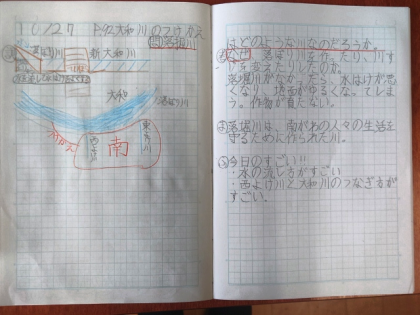 10/27 大和川のつけかえ
問落堀川
落ほり川 新大和川
大和
落ほり川
東よけ川
西よけ川
南
つけかえ
はどのような川なのだろうか。
なぜ 落ほり川を作ったり、川す
じを変えたりしたのか。
落堀川がなかったら、水はけが悪
くなり、地面がゆるくな。てしま
う。作物が育たない。
落堀川は、南がわの人々の生活を
守るために作られた川。
今日のすごい!!
・水の流し方がすごい
・西よけ川と大和川のつなぎ方が
すごい。